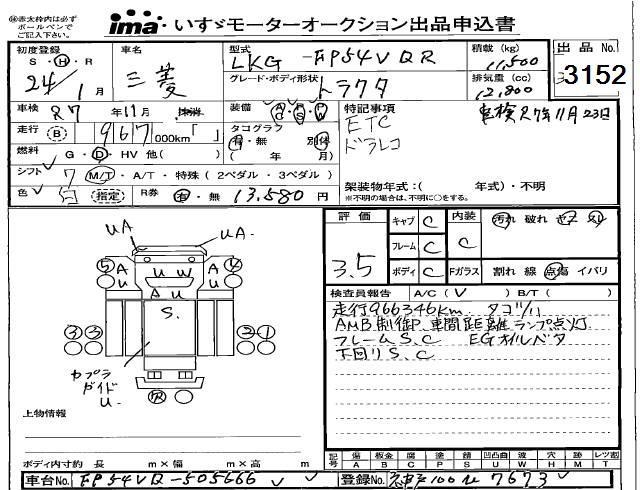 ※赤太枠内は必ず
ボールペンで
ご記入下さい。
ima・いすゞモーターオークション出品申込書
初度登録 S・H・R 24/1月
車名 三菱
型式 LKG-FP54VQR
グレード・ボディ形状 トラクタ
積載(kg) 11,500
排気量(cc) 12,800
出品No. 3152
車検 R7年11月 抹消
装備 AC PS PW
特記事項 車検R7年11月23日
ETC
ドラレコ
走行 B 967,000km「 」
タコグラフ 有・無 別体
( 年 月)
燃料 G・D・HV 他( )
シフト 7 M/T・A/T・特殊(2ペダル・3ペダル)
架装物年式:( 年式)・不明
※不明の場合は、不明に○をする。
色 白 指定 R券 有・無 13,580円
評価 3.5
キャブ C 内装 C
汚れ 破れ
フレーム C
ボディ C Fガラス 割れ 線 点傷 イバリ
検査員報告 A/C( V ) B/T( )
走行966346Km タコ
AMB.制御P.車間距離ランプ点灯
フレームS.C EGオイルベタ
下回りS.C
UA UA.
5 A A 4
U U W U
A U
S.
3 3 2-1
カプラ
ガイド
U
R
上物情報
ボディ内寸約 長 m×幅 m×高 m
記号 傷A 板金B 腐C 塗P 錆S 凹凸曲U 歪W 穴H 跡M レツ割T
車台No. FP54VQ-505666
登録No. 神戸100 7673